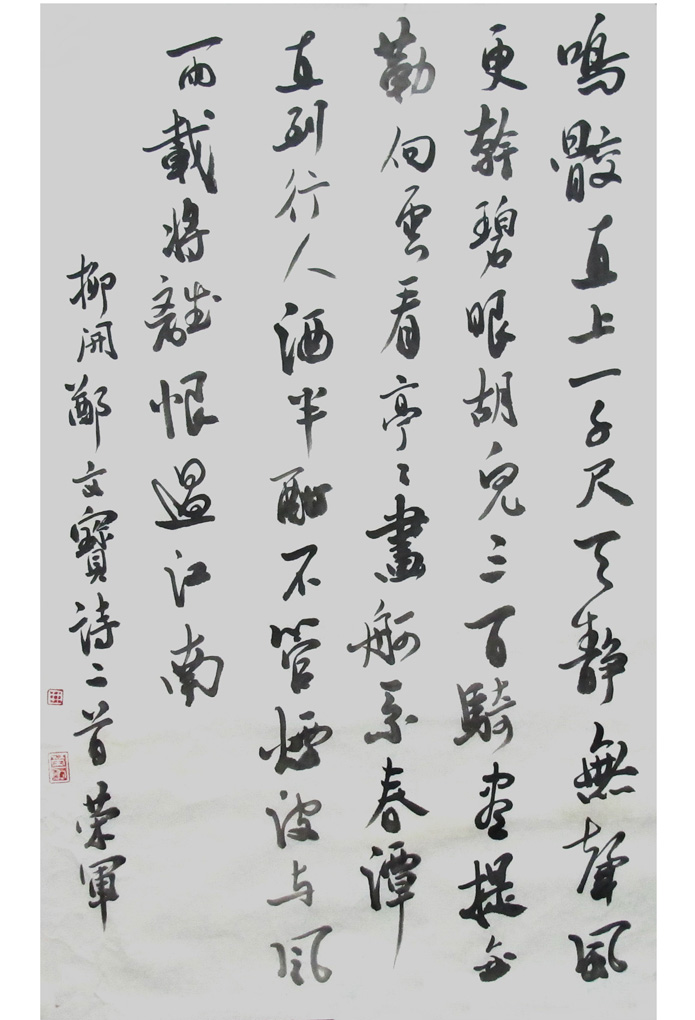 鳴骹直上一千尺天静無聲風
更幹碧眼胡兒三百騎盡提金
勒向雲看亭々畫舸系春潭
直到行人酒半酣不管煙波与風
雨載將離恨過江南
柳開鄭文寶詩二首榮軍